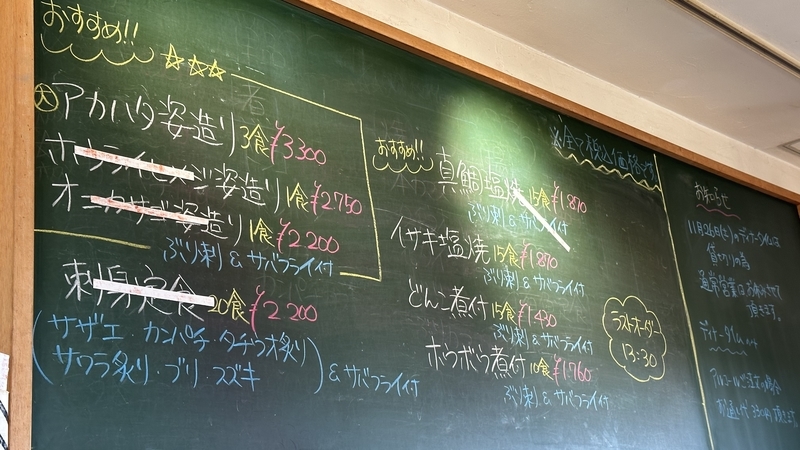 おすすめ!!
☆☆☆
大 アカハタ姿造り 3食 ¥3300
姿造り 1食 ¥2750
姿造り 1食 ¥2200
ぶり刺 & サバフライ付
刺身定食 20食 ¥2200
(サザエ・カンパチ・タチウオ炙り
サワラ炙り・ブリ・スズキ) & サバフライ付
※全て税込価格です
おすすめ!!
真鯛塩焼 15食 ¥1870
ぶり刺 & サバフライ付
イサキ塩焼 15食 ¥1870
ぶり刺 & サバフライ付
どんこ煮付 15食 ¥1430
ぶり刺 & サバフライ付
ホウボウ煮付 10食 ¥1760
ぶり刺 & サバフライ付
ラストオーダー
13:30
お知らせ
貸切りの為
通常営業は
頂きます。
ディナータイム
アルコールご注文の場合